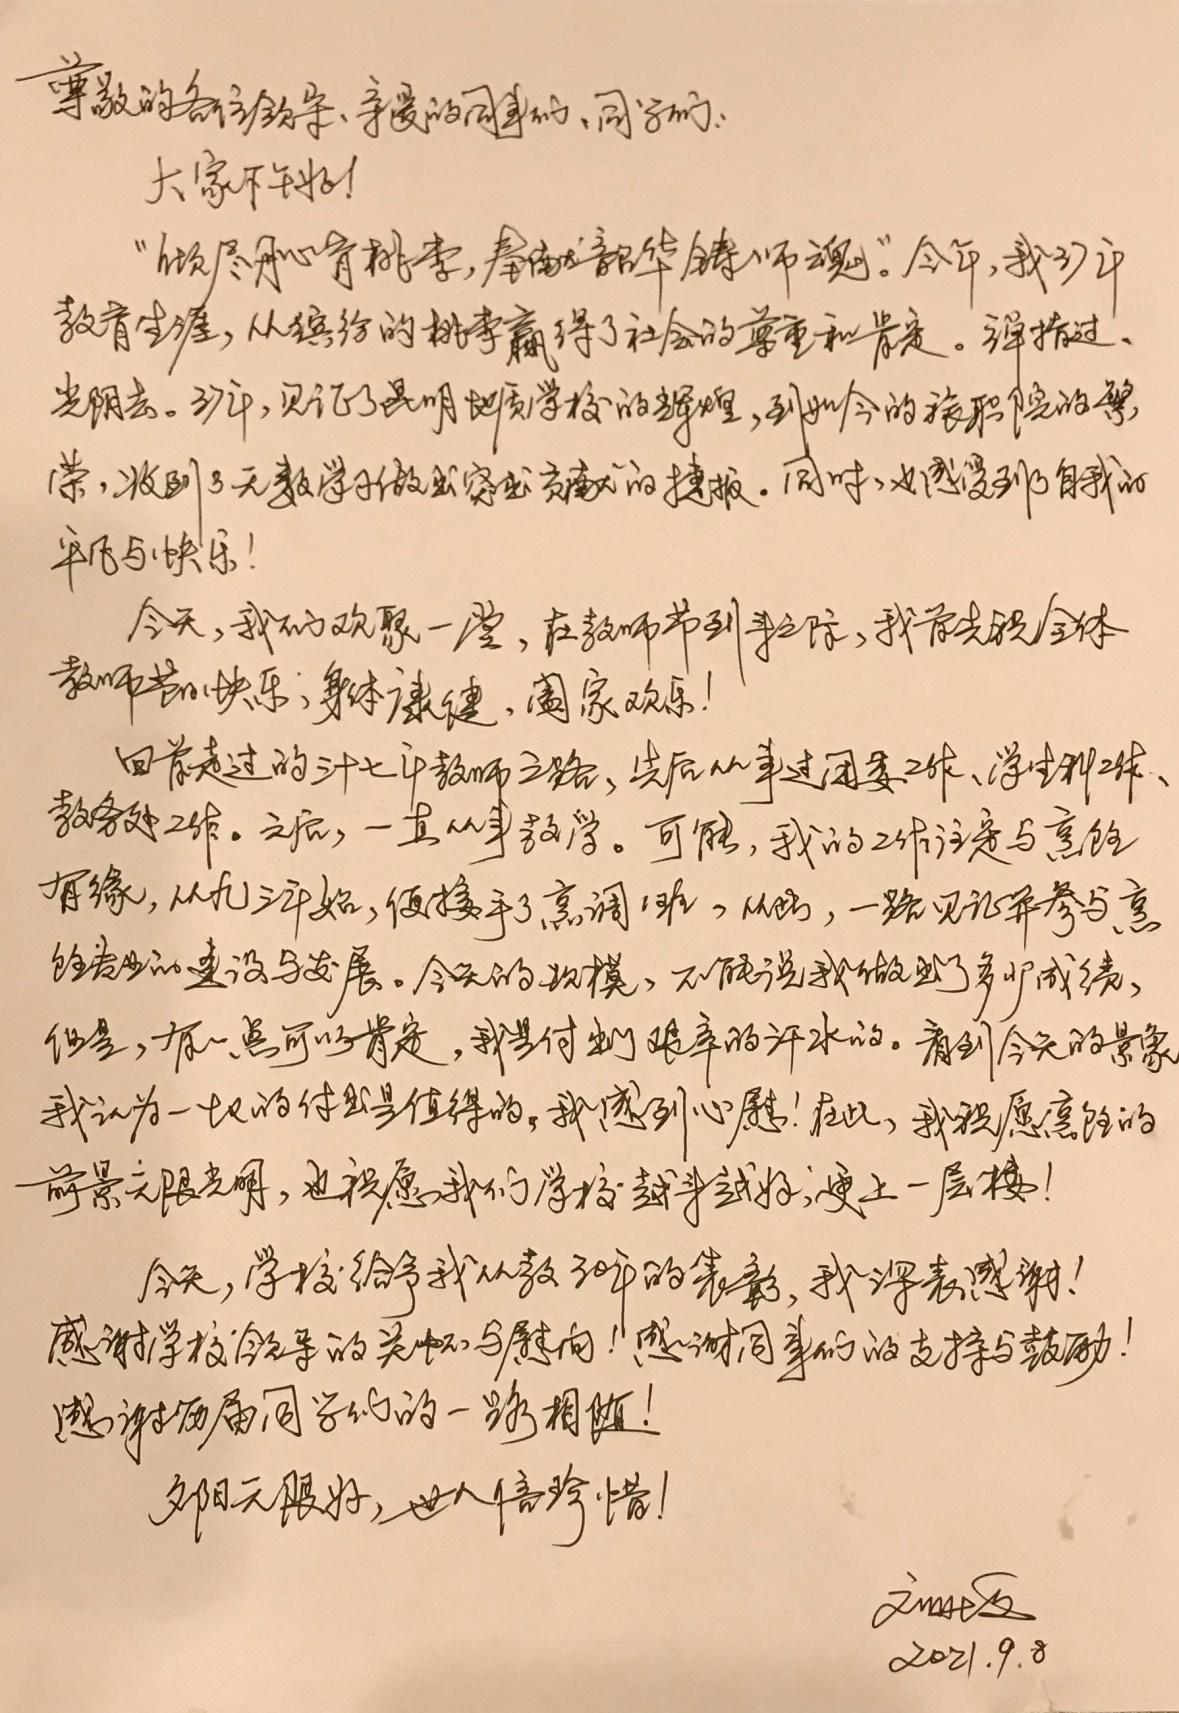 尊敬的各位领导、亲爱的同事们、同学们：
大家下午好！
“倾尽丹心育桃李，奉献韶华铸师魂”。今年，我37年
教育生涯，从缤纷的桃李赢得了社会的尊重和肯定。弹指过、
光阴去。37年，见证了昆明地质学校的辉煌，到如今的旅职院的繁
荣，收到了无数学子做出突出贡献的捷报。同时，也感受到了自我的
平凡与快乐！
今天，我们欢聚一堂，在教师节到来之际，我首先祝全体
教师节日快乐；身体康健，阖家欢乐！
回首走过的三十七年教师之路，先后从事过团委工作、学生科工作、
教务处工作。之后，一直从事教学。可能，我的工作注定与烹饪
有缘，从九三年始，便接手了烹调班，从此，一路见证并参与烹
饪专业的建设与发展。今天的规模，不能说我做出了多少成绩，
但是，有一点可以肯定，我是付出了艰辛的汗水的。看到今天的景象
我认为一切的付出是值得的，我感到心慰！在此，我祝愿烹饪的
前景无限光明，也祝愿我们学校越来越好，更上一层楼！
今天，学校给予我从教30年的表彰，我深表感谢！
感谢学校领导的关怀与慰问！感谢同事们的支持与鼓励！
感谢历届同学们的一路相随！
夕阳无限好，世人倍珍惜！
2021.9.8